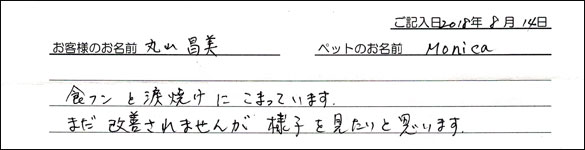 ご記入日2018年 8月 14日
お客様のお名前 丸山 昌美 ペットのお名前 Monica
食フンと涙焼けにこまっています.
まだ改善されませんが様子を見たいと思います.